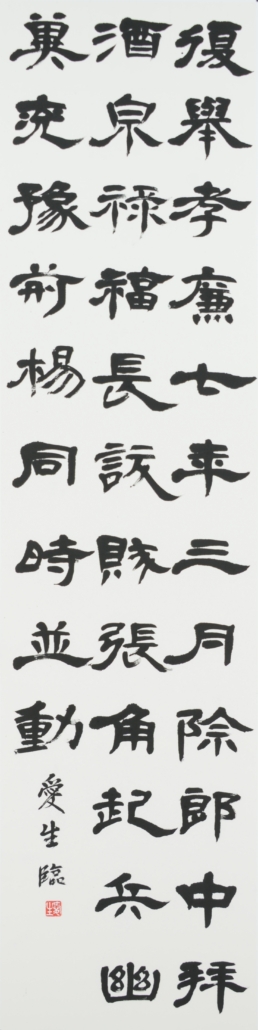 復舉孝廉七年三月除郎中拜
酒泉祿福長訞賊張角起兵幽
冀兗豫荊楊同時並動
愛生臨